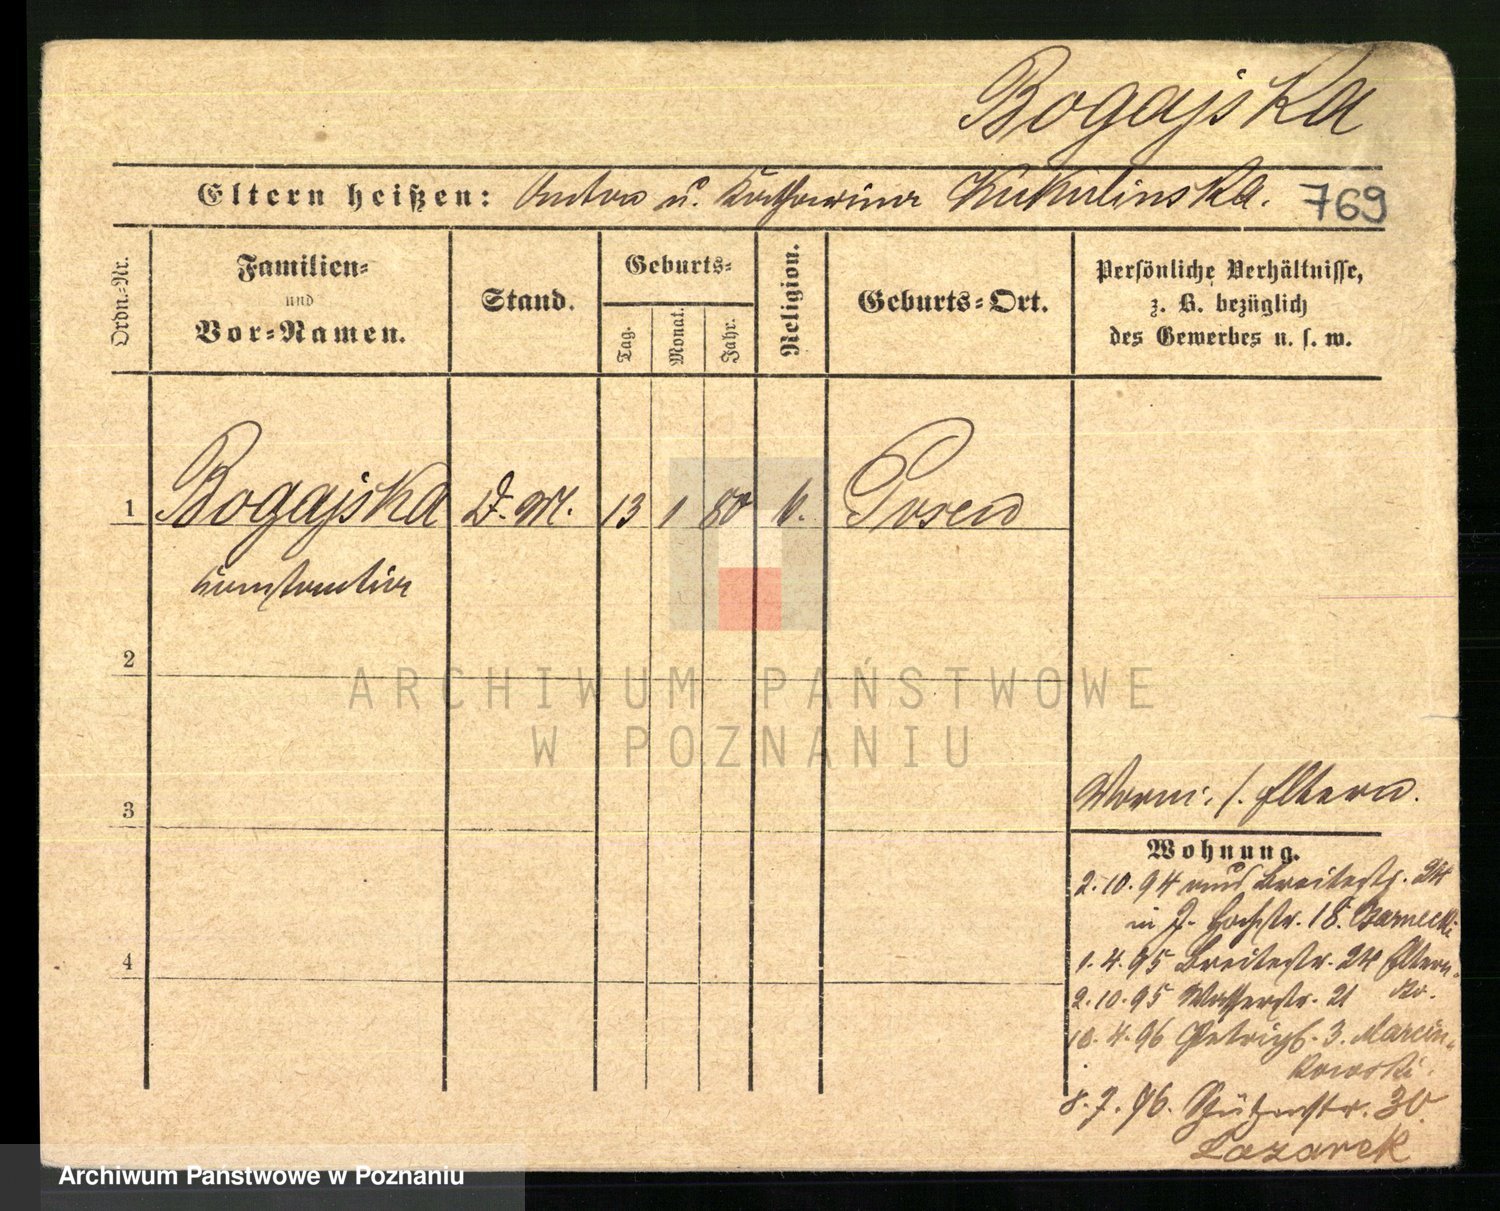 Bogajska
Eltern heißen: Anton u. Katharina Kukulinska. 769
Ordn.-Nr.
Familien-
und
Vor-Namen.
Stand.
Geburts-
Tag.
Monat.
Jahr.
Religion.
Geburts-Ort.
Persönliche Verhältnisse,
z. B. bezüglich
des Gewerbes u. s. w.
1 Bogajska D. M. 13 1 80 k. Posen
Konstantia
2
3
4
Vorm. s. Eltern.
Wohnung.
2.10.94 Breitestr. 24
in J. Hochstr. 18. Barnecki
1.4.95 Breitestr. 24 Eltern.
2.10.95 Wasserstr. 21
10.4.96 3. Marcin-
kowski.
8.7.96. Schützenstr. 30.
Lazarek
ARCHIWUM PAŃSTWOWE
W POZNANIU
Archiwum Państwowe w Poznaniu